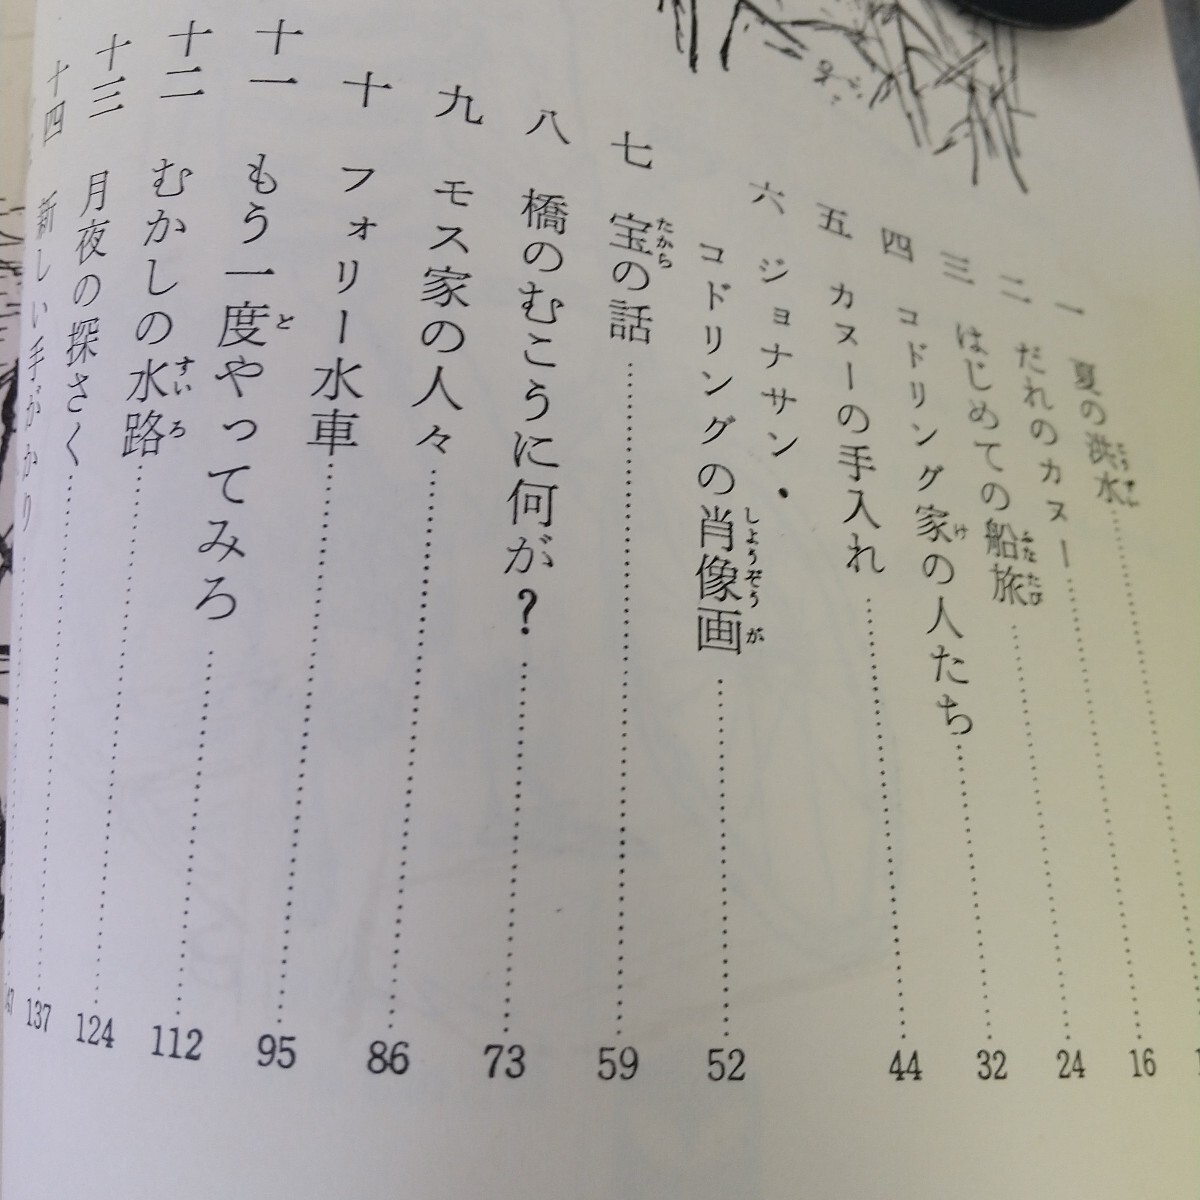 こうずい
一 夏の洪水
二 だれのカヌー 16
ふなたび
三 はじめての船旅 24
け
四 コドリング家の人たち 32
五 カヌーの手入れ 44
六 ジョナサン・
しようぞうが
コドリングの肖像画 52
たから
七 宝の話 59
八 橋のむこうに何が？ 73
九 モス家の人々 86
十 フォリー水車 95
ど
十一 もう一度やってみろ 112
すいろ
十二 むかしの水路 124
十三 月夜の探さく 137
十四 新しい手がかり 47